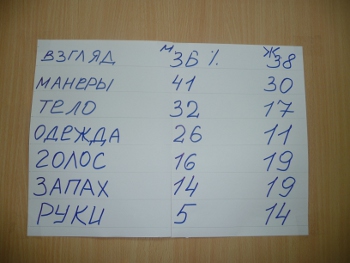 М Ж
ВЗГЛЯД 36 % 38
МАНЕРЫ 41 30
ТЕЛО 32 17
ОДЕЖДА 26 11
ГОЛОС 16 19
ЗАПАХ 14 19
РУКИ 5 14